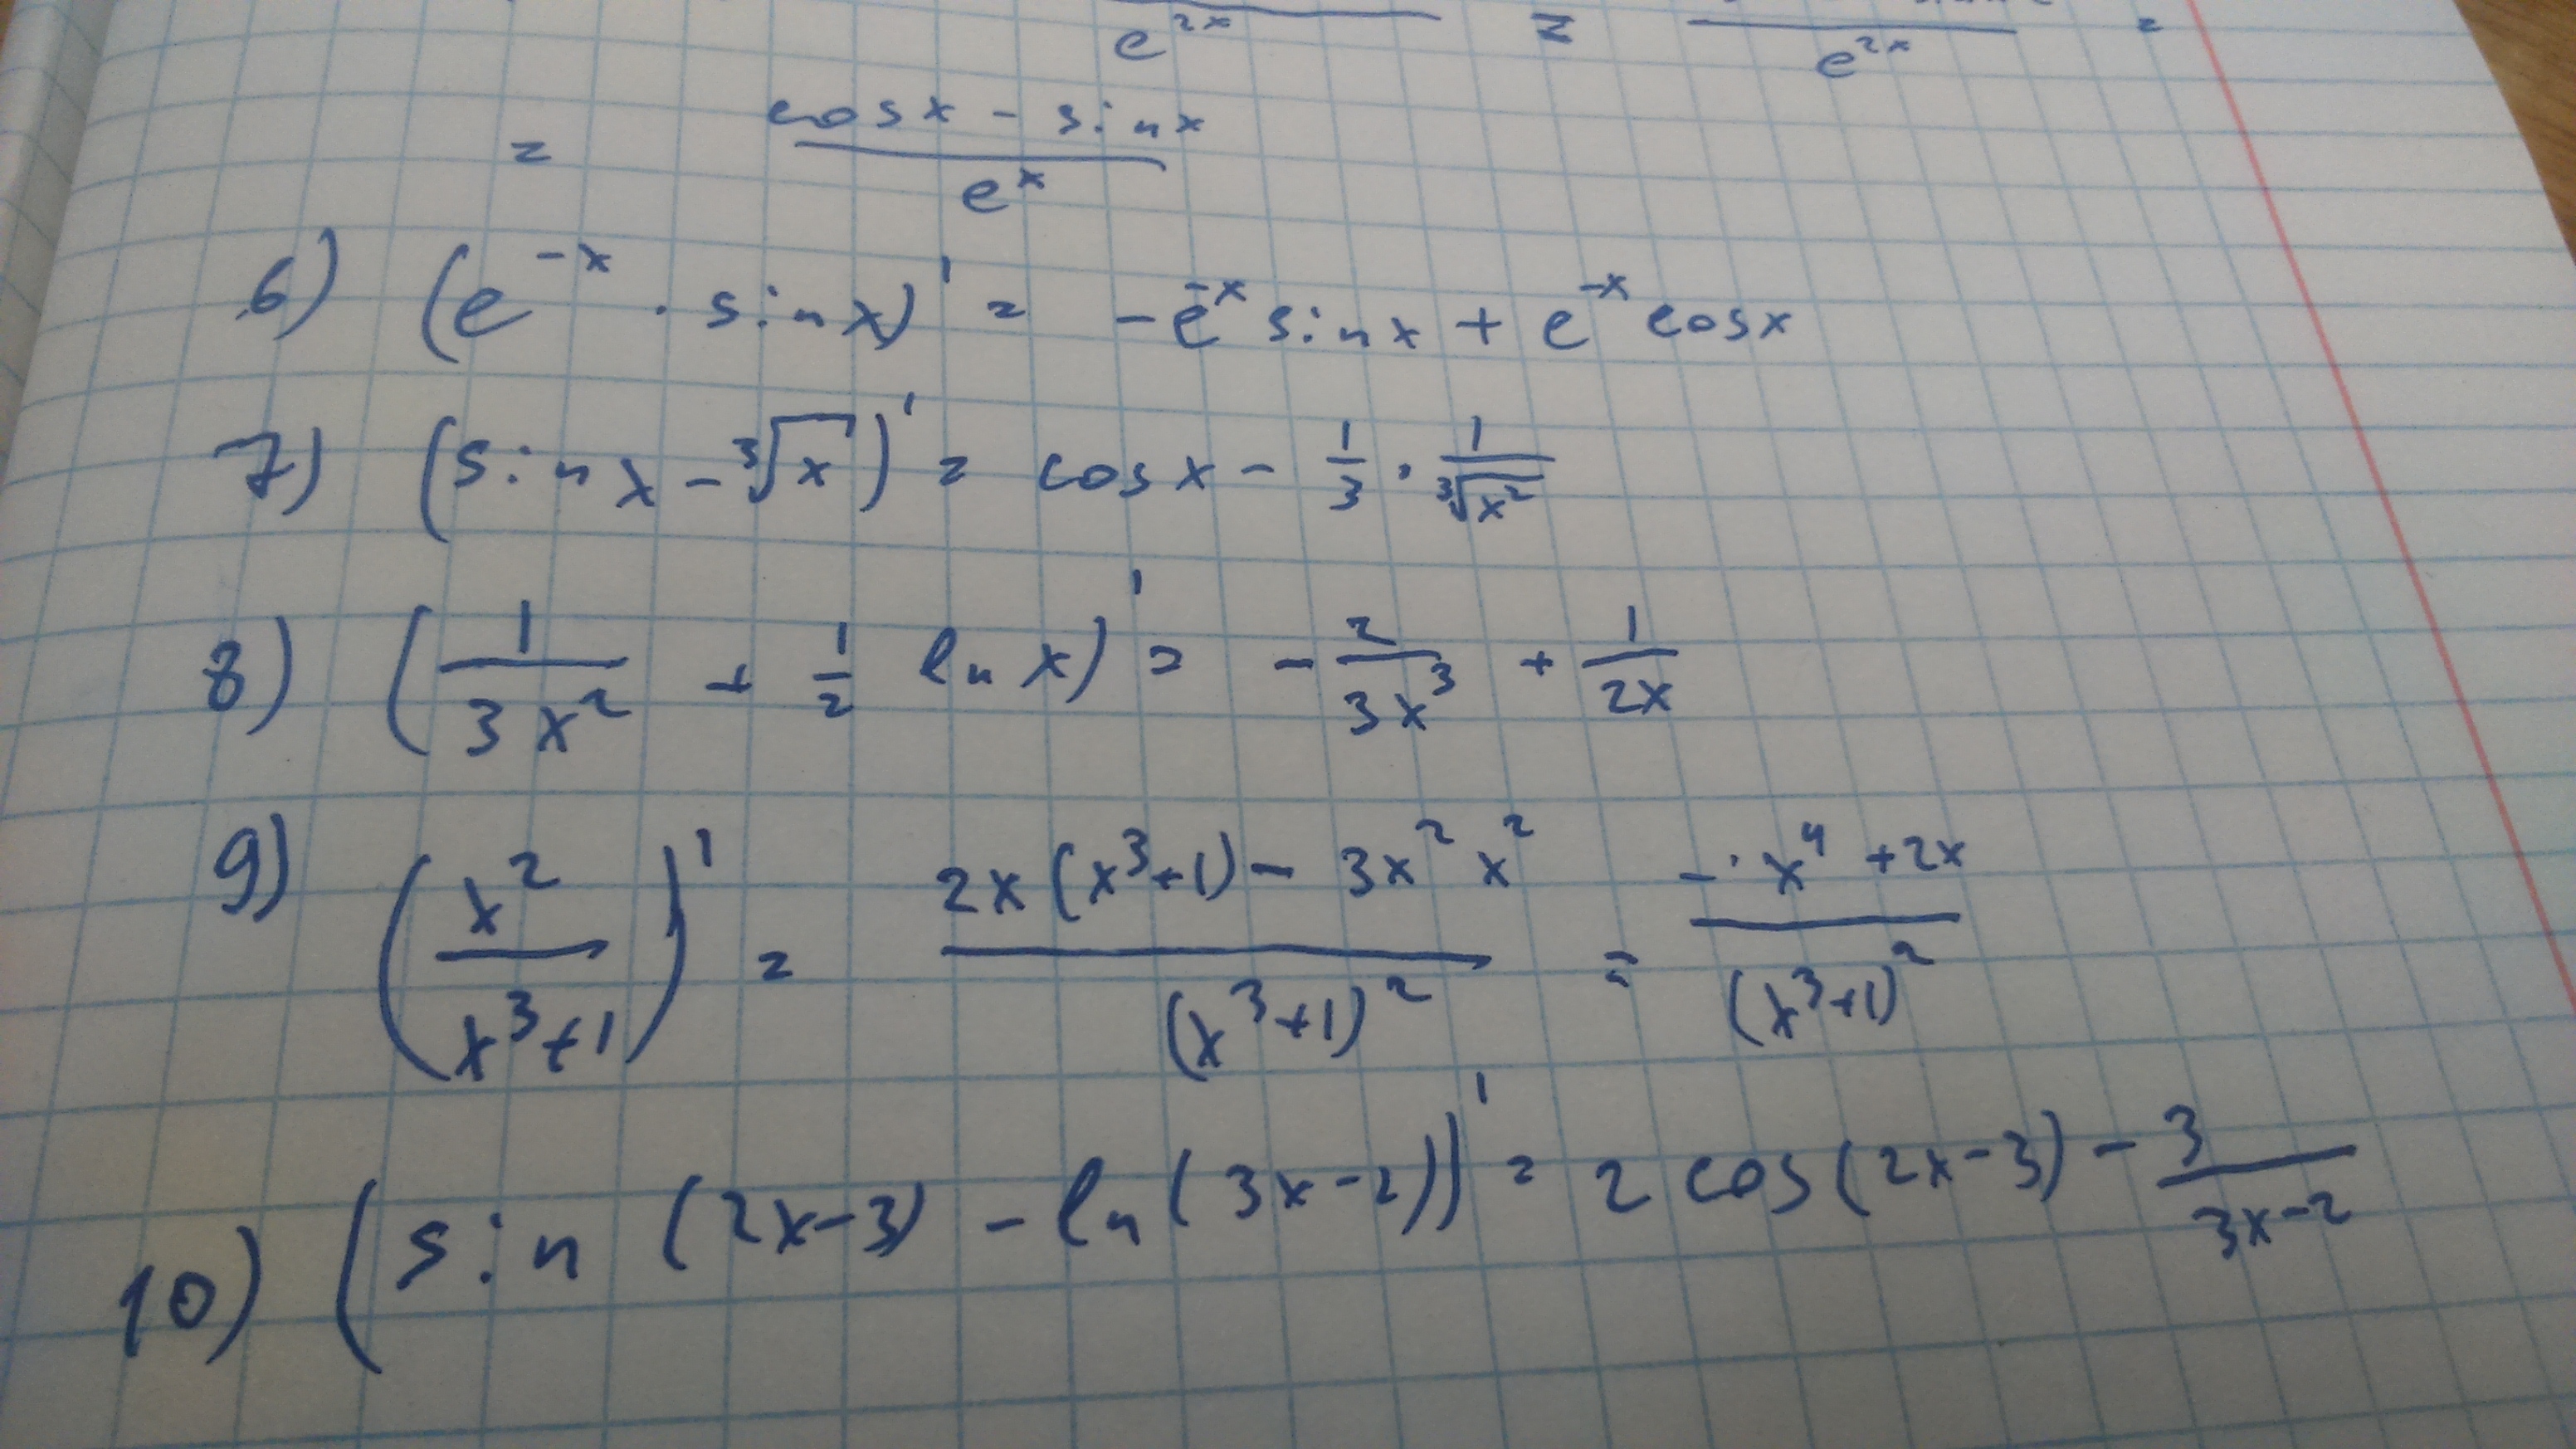 e^{2x} = e^{2x} =
= \frac{cosx - sinx}{e^x}
6) (e^{-x} · sinx)' = -e^{-x} sinx + e^{-x} cosx
7) (sinx - \sqrt[3]{x})' = cosx - \frac{1}{3} · \frac{1}{\sqrt[3]{x^2}}
8) (\frac{1}{3x^2} + \frac{1}{2} ln x)' = -\frac{2}{3x^3} + \frac{1}{2x}
9) (\frac{x^2}{x^3+1})' = \frac{2x(x^3+1) - 3x^2 x^2}{(x^3+1)^2} = \frac{-x^4+2x}{(x^3+1)^2}
10) (sin(2x-3) - ln(3x-2))' = 2cos(2x-3) - \frac{3}{3x-2}